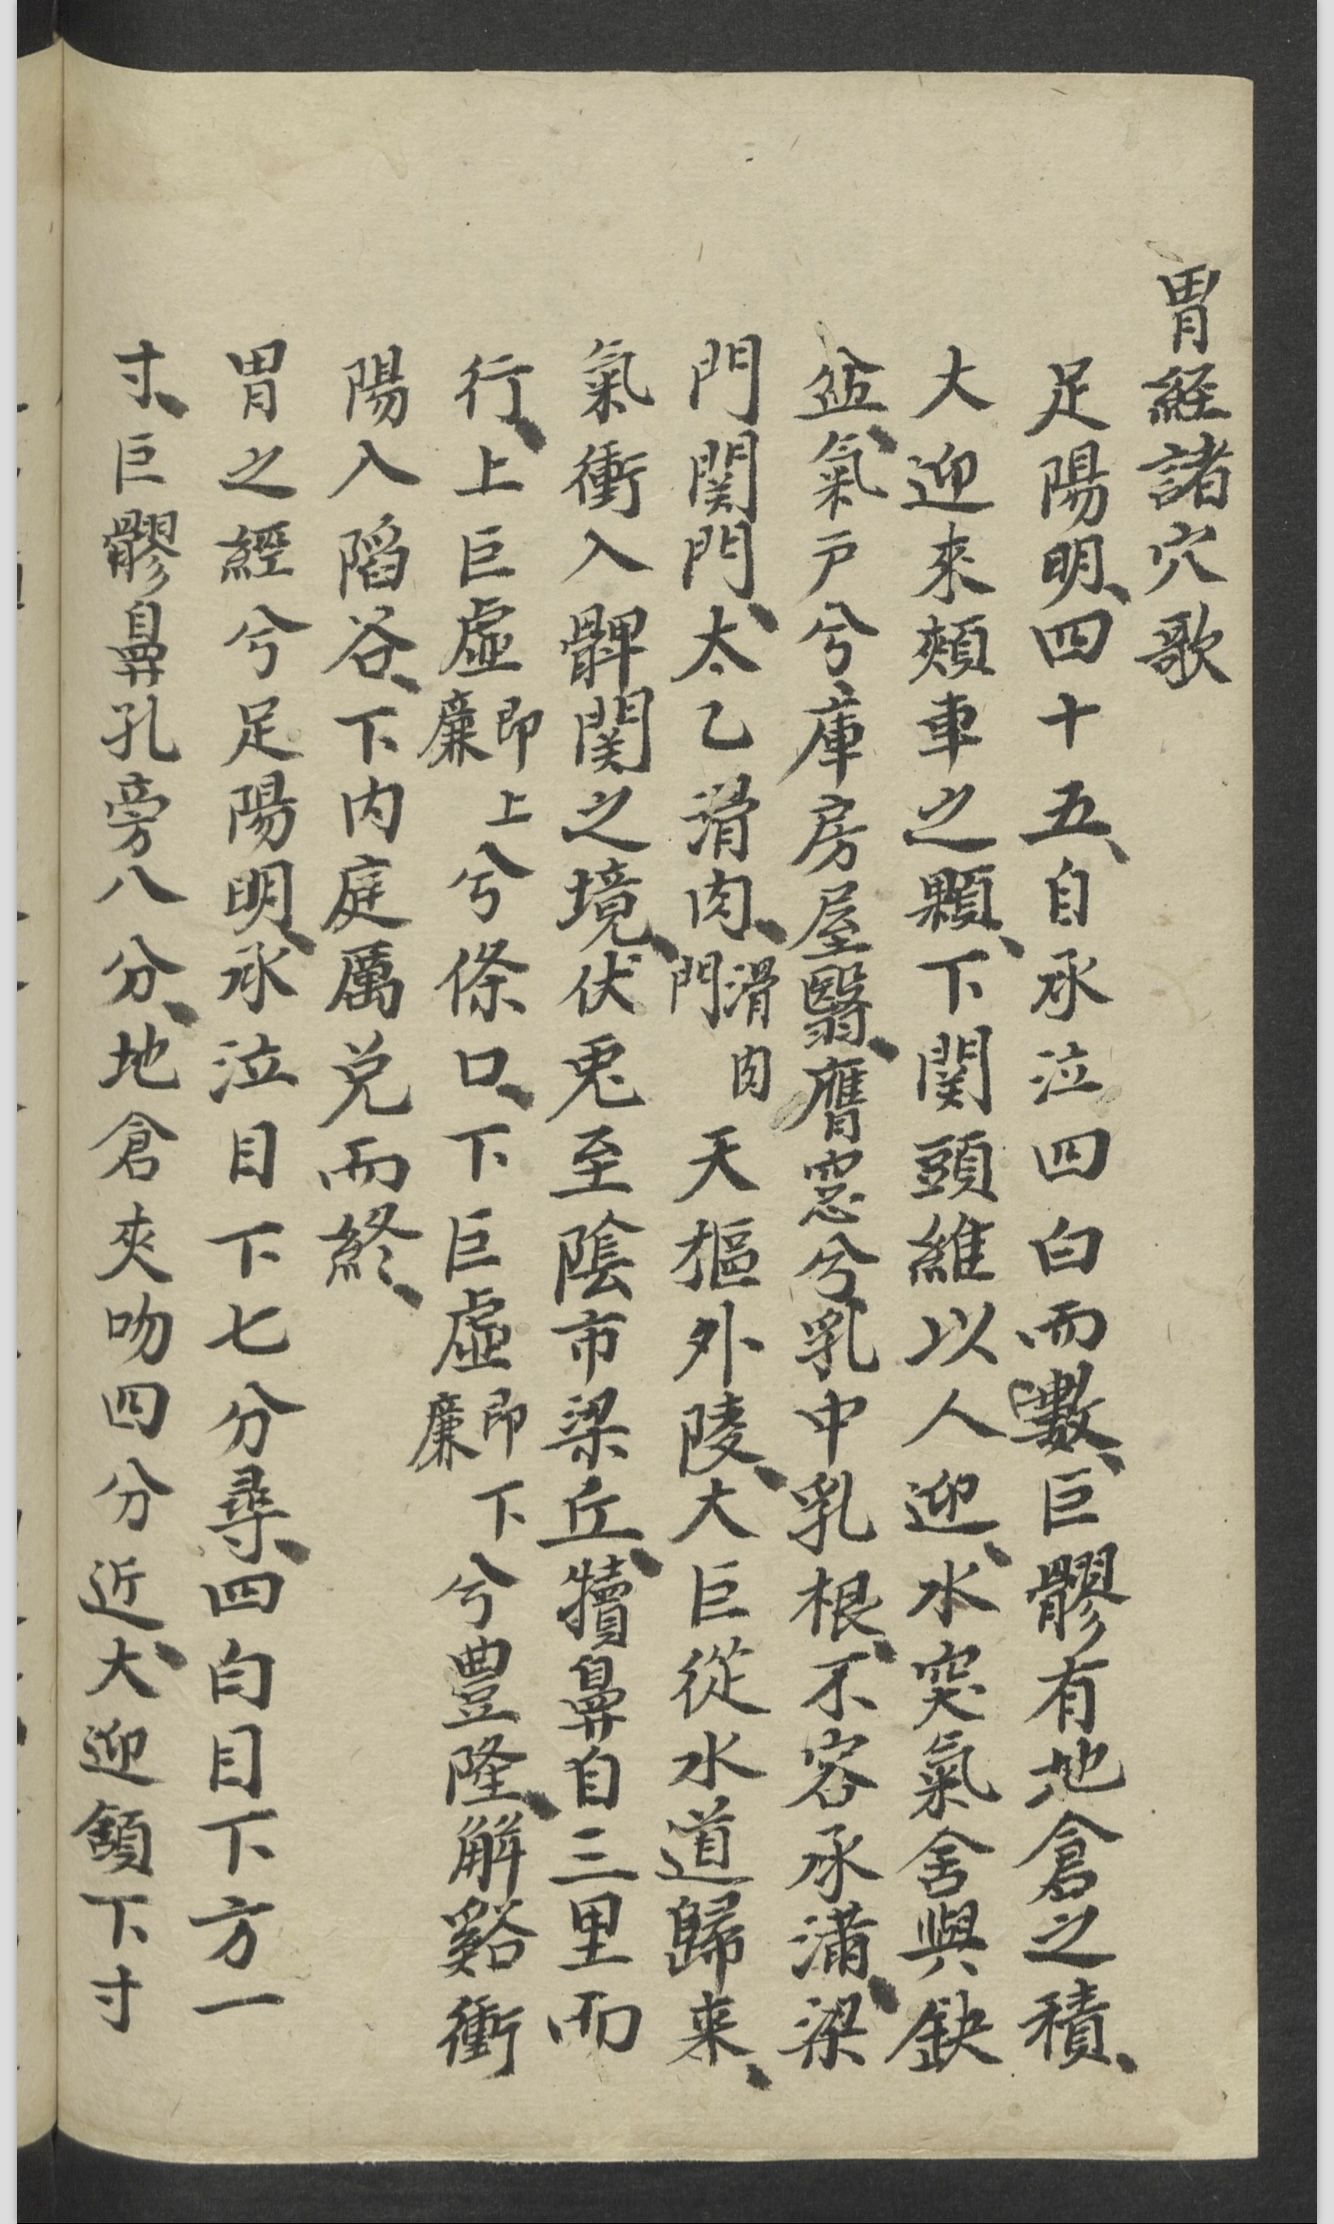 胃経諸穴歌
足陽明、四十五、自承泣四白而數、巨髎有地倉之積、
大迎來頰車之顆、下関頭維以人迎、水突氣舍與缺
盆、氣戶兮庫房屋翳、膺窓兮乳中乳根、不容承滿、梁
門関門、太乙滑肉、滑肉門天樞外陵、大巨從水道歸来、
氣衝入髀関之境、伏兎至陰市梁丘、犢鼻自三里而
行、上巨虛即上廉兮條口、下巨虛即下廉兮豊隆、解谿衝
陽入陷谷、下内庭厲兌而終、
胃之經兮足陽明、承泣目下七分尋、四白目下方一
寸、巨髎鼻孔旁八分、地倉夾吻四分近、大迎頷下寸